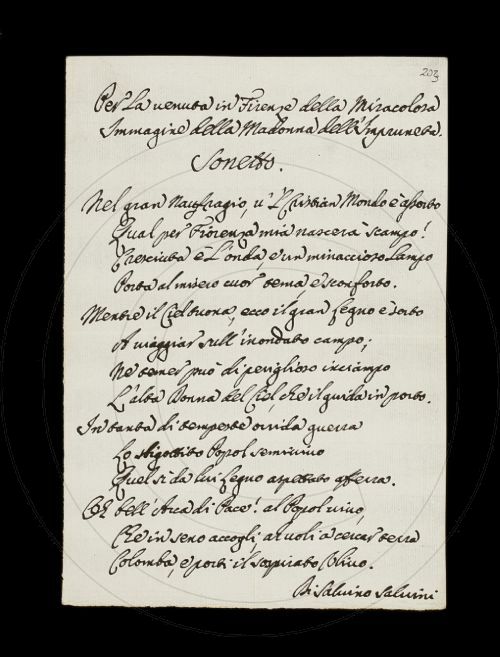 203
Per La venuta in Firenze della Miracolosa
Immagine della Madonna dell'Impruneta.
Sonetto.
Nel gran Naufragio, u' L'Cristian Mondo è assorto
Qual per Fiorenza mia nascerà scampo!
Cresciuta è L'onda, e un minaccioso Lampo
Porta al misero cuor tema, e sconforto.
Mentre il Ciel tuona, ecco il gran Legno è sorto
A viaggiar sull'inondato campo;
Ne temer può di periglioso inciampo
L'alta Donna del Ciel, che il guida in porto.
In tanta di tempeste orrida guerra
Lo sbigottito Popol semivivo
Quel si da lui Legno aspettato afferra.
Oh bell'Arca di Pace! al Popol vivo,
Che in seno accogli, a voli a cercar terra
Colomba, e porti il sospirato Ulivo.
Di Salvino Salvini